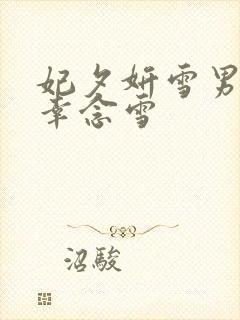 妃夕妍雪男
幸念雪
沼駿